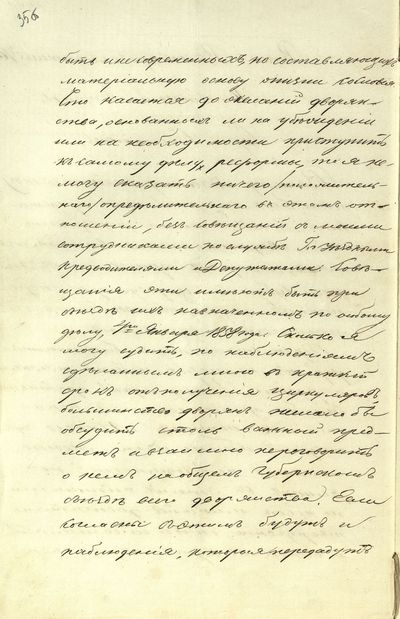 356
быть и не современныхъ, но составляющихъ
матеріальную основу жизни
Что касается до желаній дворян-
ства, основанныхъ ли на убѣжденіи
или на необходимости приступить
къ самому дѣлу реформы, то я не
могу сказать ничего положитель-
наго, опредѣлительнаго въ этомъ от-
ношеніи, безъ совѣщаній съ моими
сотрудниками по службѣ Гг. Уѣздными
Предводителями и Депутатами. Совѣ-
щанія эти имѣютъ быть при
съѣздѣ ихъ назначенномъ по особому
дѣлу, Января 1858 года. Сколько я
могу судить, по наблюденіямъ
сдѣланнымъ мною въ краткій
срокъ отъ полученія циркуляровъ
большинство дворянъ желало бы
обсудить столь важный пред-
метъ и взаимно переговорить
о немъ на общемъ Губернскомъ
съѣздѣ всего дворянства. Если
согласны съ этимъ будутъ и
наблюденія, которыя передадутъ